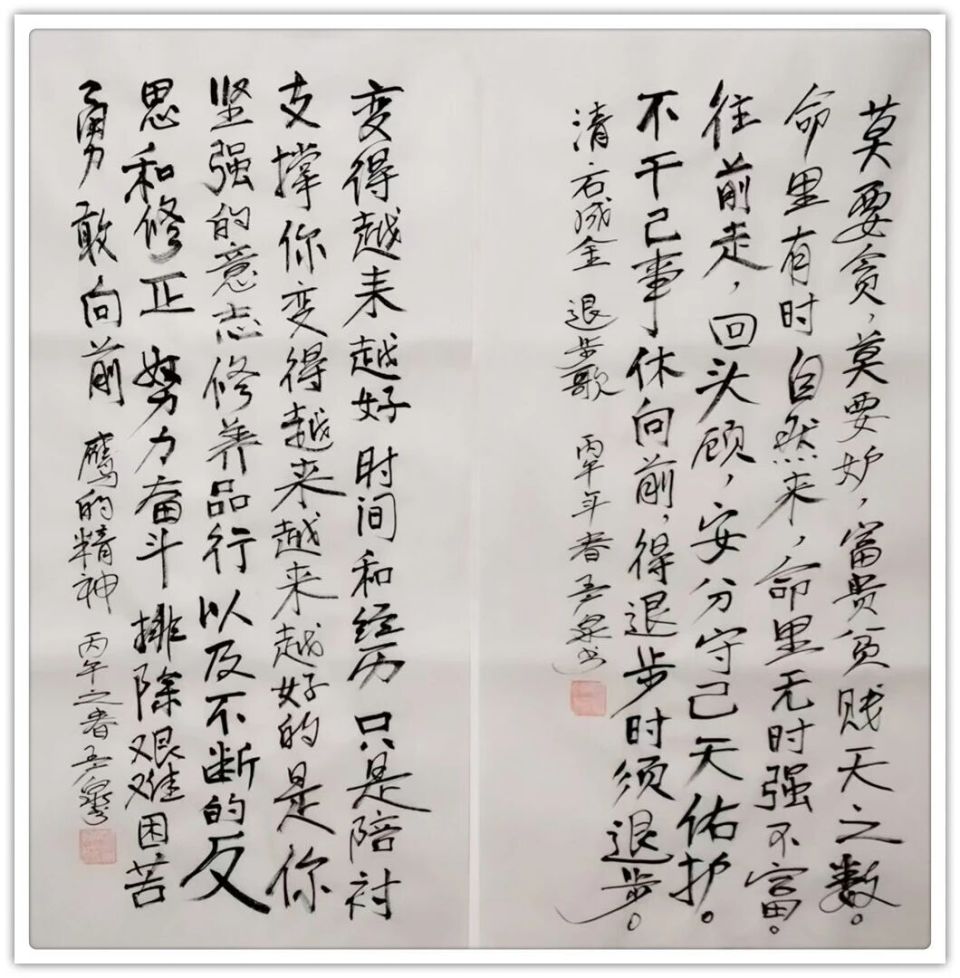 莫要贪，莫要妒，富贵贫贱天之数。
命里有时自然来，命里无时强不富。
往前走，回头顾，安分守己天佑护。
不干己事休向前，得退步时须退步。
清 石成金 退步歌 丙午年春
变得越来越好 时间和经历 只是陪衬
支撑你变得越来越来越好的是你
坚强的意志修养品行 以及不断的反
思和修正 努力奋斗 排除艰难困苦
勇敢向前 鹰的精神 丙午之春